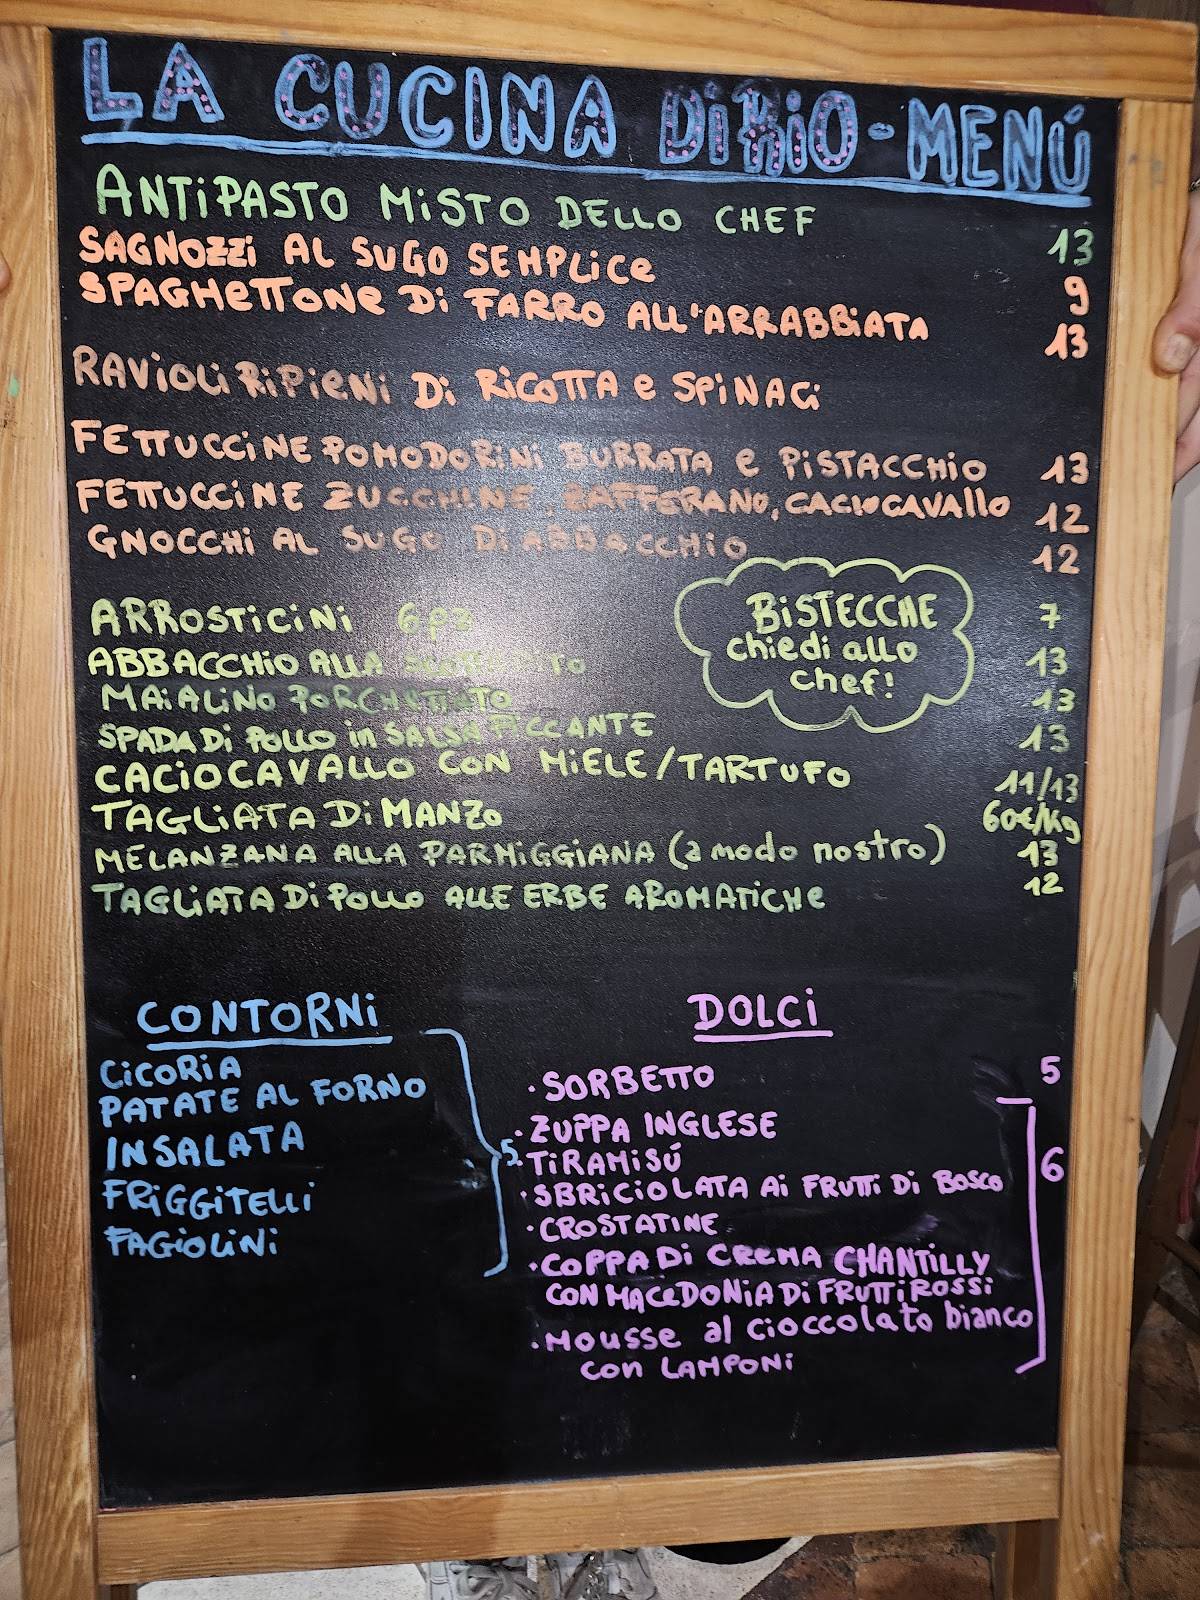 LA CUCINA DiRiO - MENÚ
ANTiPASTO MiSTO DELLO CHEF 13
SAGNOZZi AL SUGO SEMPLiCE 9
SPAGHETTONE Di FARRO ALL'ARRABBIATA 13
RAViOLi RiPiENi Di RiCOTTA e SPiNACi
FETTUCCiNE POMODORiNi BURRATA e PiSTACCHiO 13
FETTUCCiNE ZUCCHiNE, ZAFFERANO, CACIOCAVAllO 12
GNOCCHi AL SUGO Di ABBACCHiO 12
ARROSTiCiNi 6pz 7
ABBACCHiO ALLA SCOTTADITO 13
MAiALiNO PORCHETTATO 13
SPADA Di POLLO in SALSA PiCCANTE 13
CACiOCAVALLO CON MiELE/TARTUFO 11/13
TAGLiATA Di MANZO 60€/Kg
MELANZANA ALLA PARMiGGiANA (a modo nostro) 13
TAGLiATA Di POLLO ALLE ERBE AROMATiCHe 12
BiSTECCHE
chiedi allo
chef!
CONTORNi
CiCORiA
PATATE AL FORNO
INSALATA
FRiGGiTELLi
FAGiOLiNi
5
DOLCi
· SORBETTO 5
· ZUPPA INGLESE
· TiRAMiSÚ 6
· SBRiCiOLATA Ai FRUTTi Di BOSCO
· CROSTATiNE
· COPPA Di CREMA CHANTiLLY
CON MACEDONiA Di FRUTTi ROSSi
· MOUSSE al cioccolato bianco
con LAMPONi